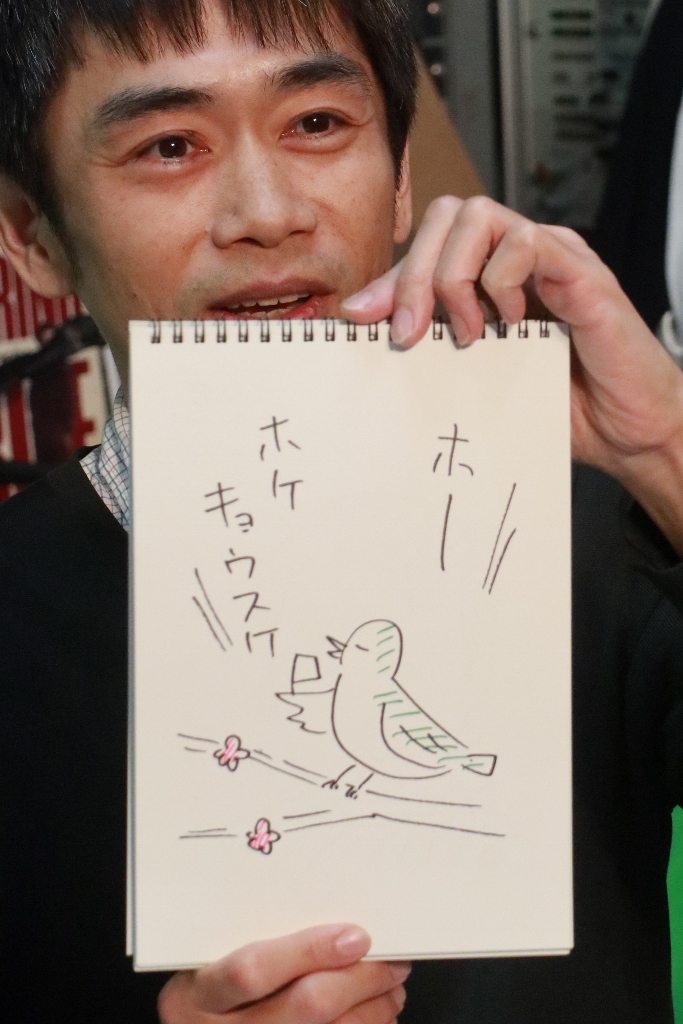 ホー
ホケ
キョウスケ